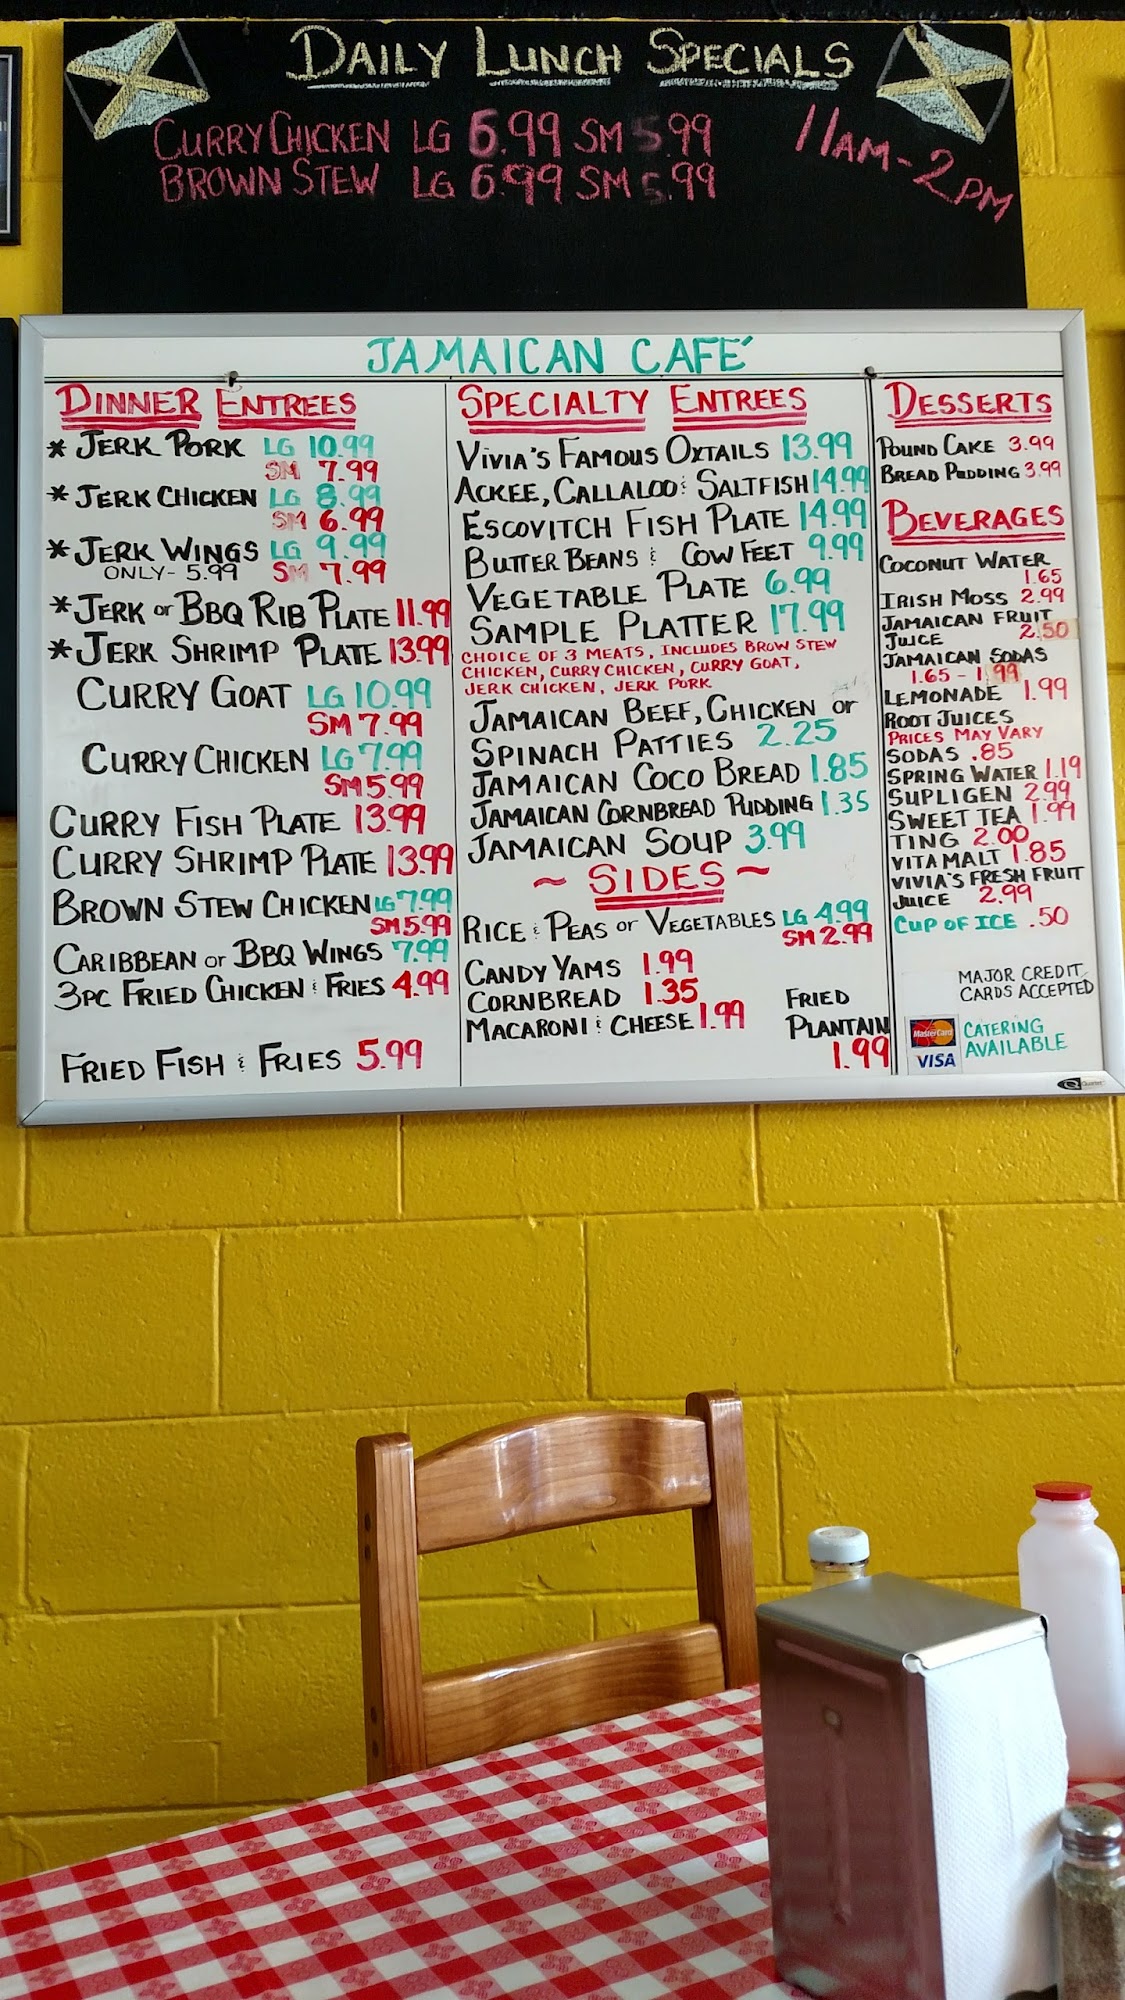 DAILY LUNCH SPECIALS
CURRY CHICKEN LG 6.99 SM 5.99
BROWN STEW LG 6.99 SM 5.99
11AM-2PM
JAMAICAN CAFÉ
DINNER ENTREES
* JERK PORK LG 10.99
SM 7.99
* JERK CHICKEN LG 8.99
SM 6.99
* JERK WINGS LG 9.99
ONLY- 5.99 SM 7.99
* JERK OR BBQ RIB PLATE 11.99
* JERK SHRIMP PLATE 13.99
CURRY GOAT LG 10.99
SM 7.99
CURRY CHICKEN LG 7.99
SM 5.99
CURRY FISH PLATE 13.99
CURRY SHRIMP PLATE 13.99
BROWN STEW CHICKEN LG 7.99
SM 5.99
CARIBBEAN OR BBQ WINGS 7.99
3PC FRIED CHICKEN & FRIES 4.99
FRIED FISH & FRIES 5.99
SPECIALTY ENTREES
VIVIA'S FAMOUS OXTAILS 13.99
ACKEE, CALLALOO & SALTFISH 14.99
ESCOVITCH FISH PLATE 14.99
BUTTER BEANS & COW FEET 9.99
VEGETABLE PLATE 6.99
SAMPLE PLATTER 17.99
CHOICE OF 3 MEATS, INCLUDES BROW STEW
CHICKEN, CURRY CHICKEN, CURRY GOAT,
JERK CHICKEN, JERK PORK
JAMAICAN BEEF, CHICKEN OR
SPINACH PATTIES 2.25
JAMAICAN COCO BREAD 1.85
JAMAICAN CORNBREAD PUDDING 1.35
JAMAICAN SOUP 3.99
~ SIDES ~
RICE & PEAS OR VEGETABLES LG 4.99
SM 2.99
CANDY YAMS 1.99
CORNBREAD 1.35
MACARONI & CHEESE 1.99
FRIED
PLANTAIN
1.99
DESSERTS
POUND CAKE 3.99
BREAD PUDDING 3.99
BEVERAGES
COCONUT WATER
1.65
IRISH MOSS 2.99
JAMAICAN FRUIT
JUICE 2.50
JAMAICAN SODAS
1.65 - 1.99
LEMONADE 1.99
ROOT JUICES
PRICES MAY VARY
SODAS .85
SPRING WATER 1.19
SUPLIGEN 2.99
SWEET TEA 1.99
TING 2.00
VITAMALT 1.85
VIVIA'S FRESH FRUIT
JUICE 2.99
CUP OF ICE .50
MAJOR CREDIT
CARDS ACCEPTED
MasterCard
VISA
CATERING
AVAILABLE
Quartet